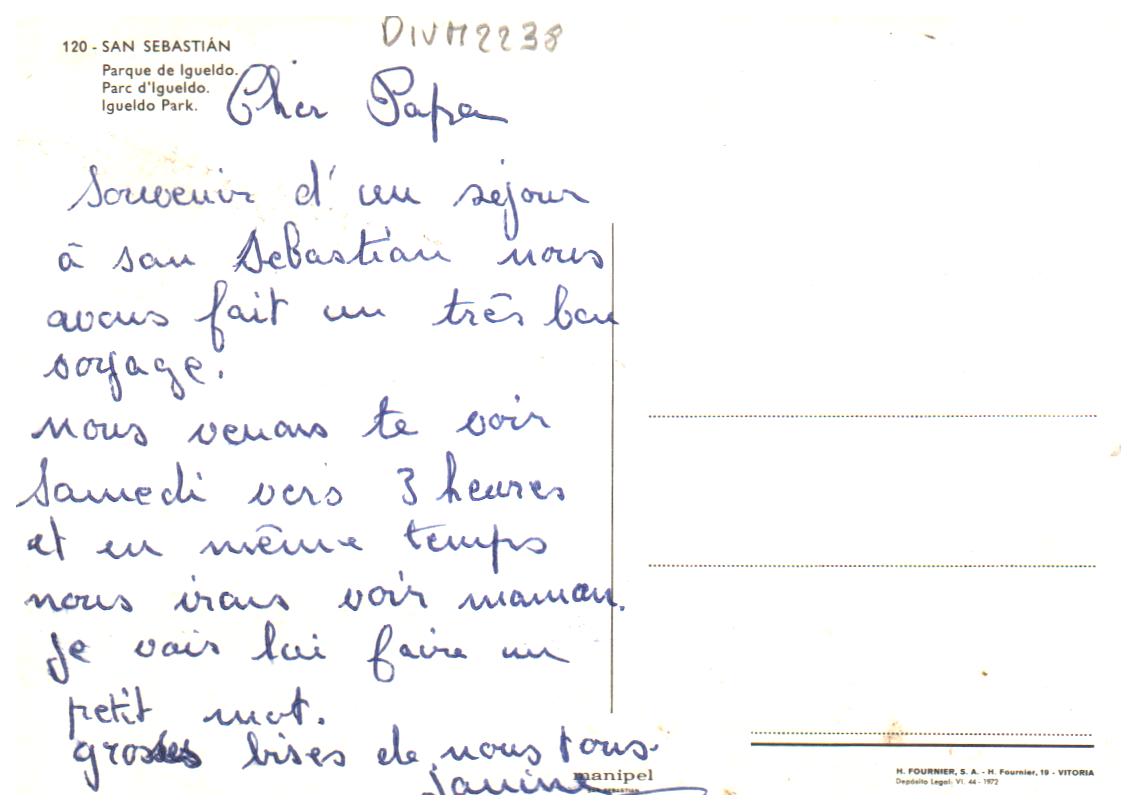 DIVM2238
120 - SAN SEBASTIÁN
Parque de Igueldo.
Parc d'Igueldo.
Igueldo Park.
Cher Papa
Souvenir d'un séjour
à san Sebastian nous
avons fait un très bon
voyage.
nous venons te voir
Samedi vers 3 heures
et en même temps
nous irons voir maman.
Je vais lui faire un
petit mot.
grosses bises de nous tous.
Janine
manipel
SAN SEBASTIAN
H. FOURNIER, S. A. - H. Fournier, 19 - VITORIA
Depósito Legal: VI. 44 - 1972